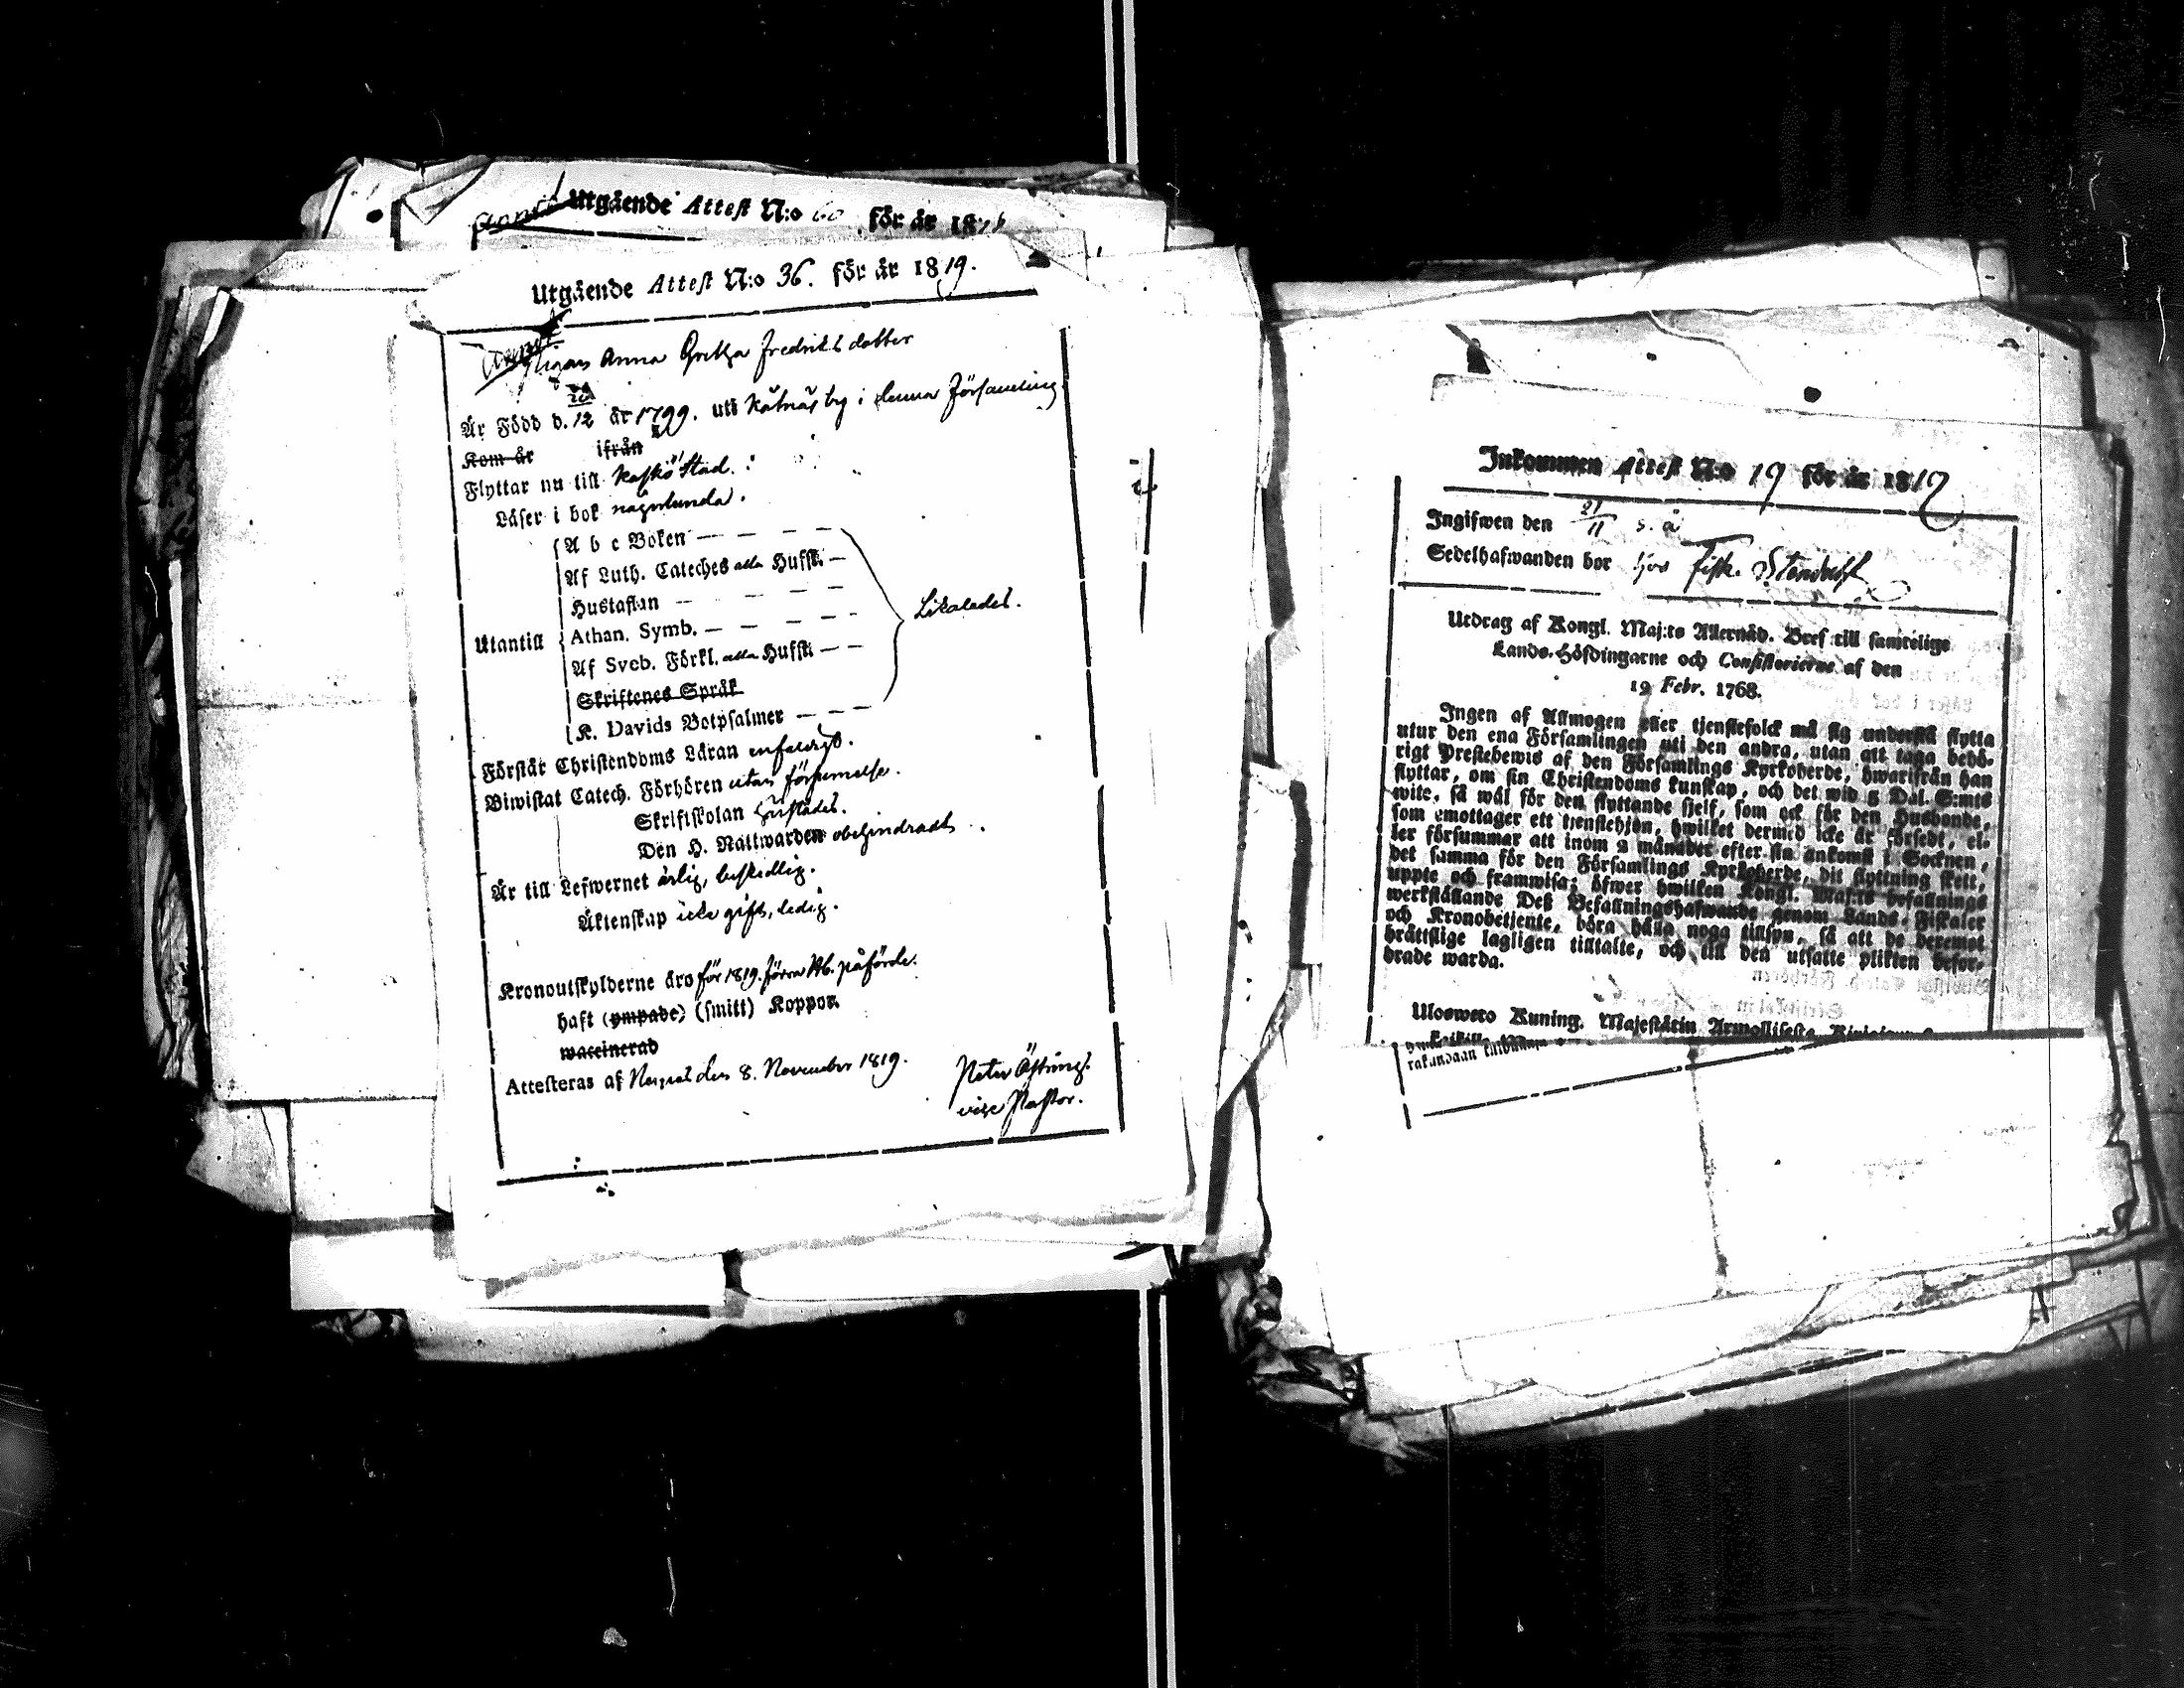 Utgående Attest N:o 60 för år 18
Utgående Attest N:o 36. för år 1819.
Pigan Anna Gretha Fredriksdotter
Är Född d. 20/12 år 1799. uti Kåtnäs by i denna Församling
Kom år ifrån
Flyttar nu till Kaskö Stad.
Läser i bok någorlunda.
A b c Boken — — — — —
Af Luth. Cateches alla Hufst. —
Hustaflan — — — — —
Utantill Athan. Symb. — — — — — Likaledes.
Af Sveb. Förkl. alla Hufst. — —
Skriftenes Språk
K. Davids Botpsalmer — — —
Förstår Christendoms Läran enfaldigt.
Biwistat Catech. Förhören utan försummelse.
Skriftskolan härstädes.
Den H. Nattwarden obehindradt.
Är till Lefwernet ärlig, beskedlig.
Äktenskap icke gift, ledig.
Kronoutskylderne äro för 1819. förra Rb. påförde.
haft (ympade) (smitt) Koppor.
waccinerad
Attesteras af Nerpes den 8. November 1819.
Petter Östring.
vice Pastor.
Inkommen Attest N:o 19 för år 1819
Ingifwen den 21/11 s. å
Sedelhafwanden bor hos Fisk.
Utdrag af Kongl. Maj:ts Allernåd. Bref till samtelige
Lands-Höfdingarne och Consistorierne af den
19 Febr. 1768.
Ingen af Allmogen eller tjenstefolck må sig understå flytta
utur den ena Församlingen uti den andra, utan att taga behö-
rigt Prestebewis af den Församlings Kyrkoherde, hwarifrån han
flyttar, om sin Christendoms kunskap, och det wid 5 Dal. S:mts
wite, så wäl för den flyttande sjelf, som ock för den Husbonde,
som emottager ett tjenstehjon, hwilket dermed icke är försedt, el-
ler försummar att inom 2 månader efter sin ankomst i Socknen,
det samma för den Församlings Kyrkoherde, dit flyttning skett,
uppte och framwisa; öfwer hwilken Kongl. Maj:ts befallnings
werkställande Deß Befallningshafwande genom Lands-Fiskaler
och Kronobetjente, böra hålla noga tillsyn, så att de deremot
brättslige lagligen tilltalte, och till den utsatte plikten befor-
drade warda.
Uloswero Kuning. Majestätin Armollisesta